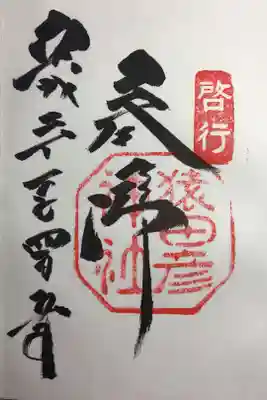 啓行
参拝
猿田彦神社
平成三十年四月五日